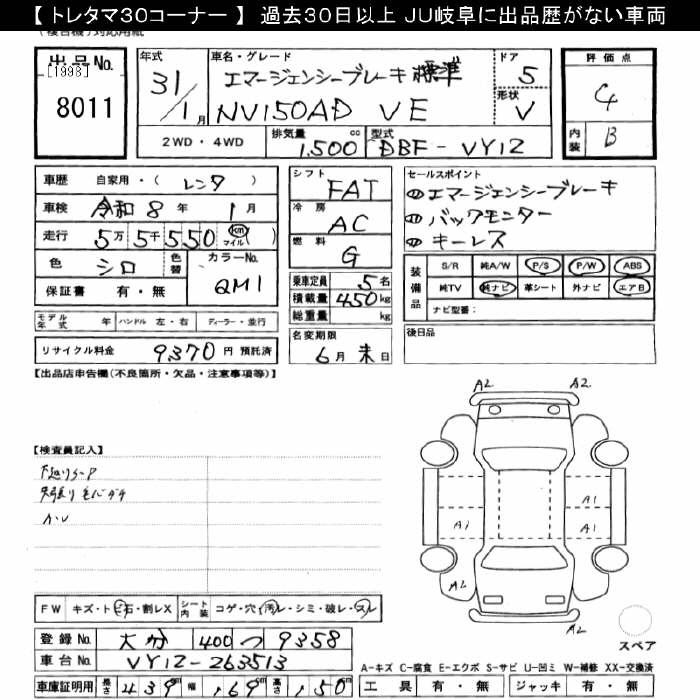 【 トレタマ30コーナー 】 過去30日以上 JU岐阜に出品歴がない車両
出品No.
[1998]
8011
年式
31/1月
車名・グレード
エマージェンシーブレーキ 標準
NV150AD VE
ドア
5
形状
V
評価点
4
内装
B
2WD・4WD
排気量
1,500 cc
型式
DBF-VY12
車歴 自家用・( レンタ )
車検 令和 8 年 1 月
走行 5万 5千 550 km マイル ( )
色 シロ
色替
カラーNo.
QM1
保証書 有・無
モデル年式 年 ハンドル 左・右 ディーラー・並行
リサイクル料金 9370 円 預託済
シフト
FAT
冷房
AC
燃料
G
乗車定員 5 名
積載量 450 kg
総重量 kg
名変期限
6 月 末 日
セールスポイント
エマージェンシーブレーキ
バックモニター
キーレス
装備品
S/R 純A/W P/S P/W ABS
純TV 純ナビ 革シート 外ナビ エアB
ナビ型番:
後日品
【出品店申告欄(不良箇所・欠品・注意事項等)】
【検査員記入】
A2 A2
A1
A1 A1
A2
A2
スペア
FW キズ・トビ石・割レX シート内装 コゲ・穴・汚レ・シミ・破レ・スレ
登録No. 大分 400 つ 9358
車台No. VY12-263513
車庫証明用 長さ 439m 幅 169m 高さ 150m
A-キズ C-腐食 E-エクボ S-サビ U-凹ミ W-補修 XX-交換済
工具 有・無 ジャッキ 有・無